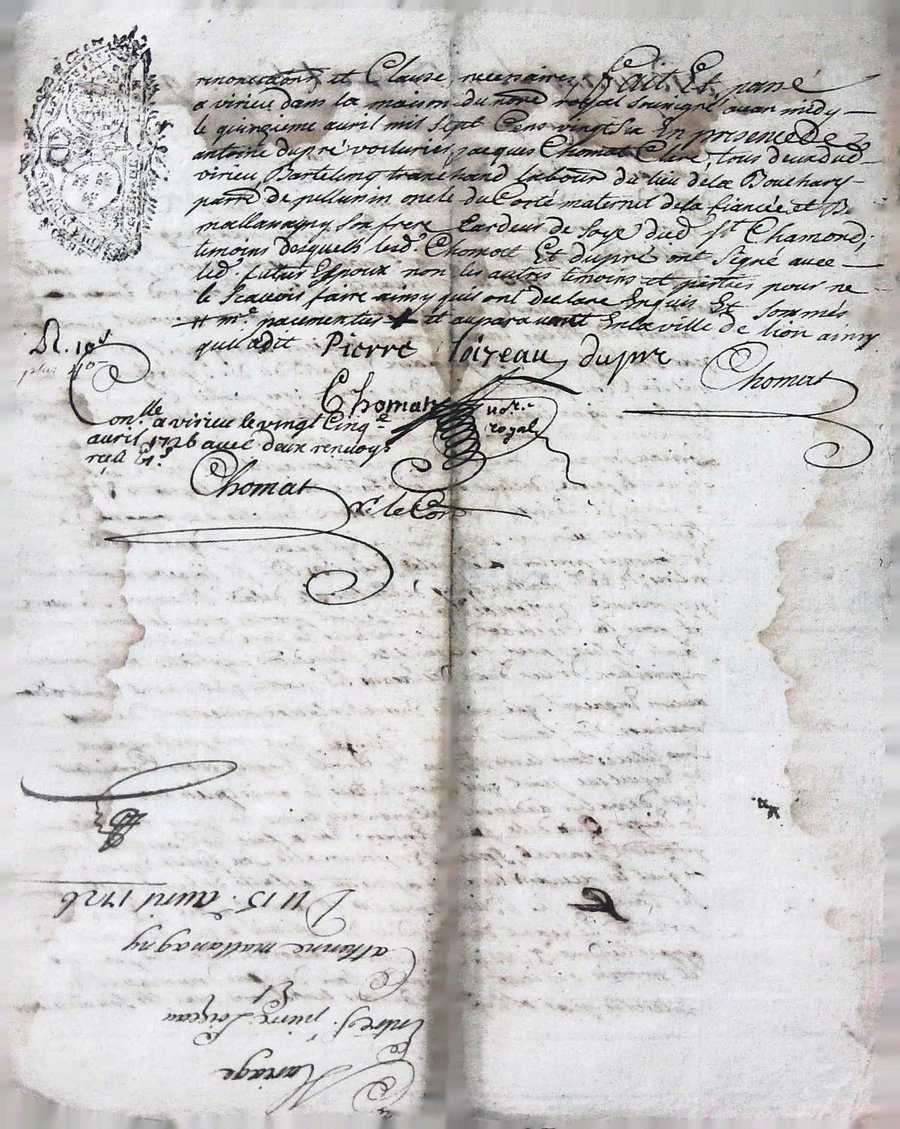 renonciations et Clause necessaires, fait Et passé
a virieu dans la maison du nore royal soubsigné avan midy
le quinzieme avril mil sept Cens vingt six En presence De
antoine dupré voiturier, jacques Chomat Clerc, tous deux dud
virieu Barteling tranchand labour du lieu de la Bouchary
parr de pellussin oncle du Costé maternel de la fiancée, et
mallavagny son frere Cardeur de soye dud St Chamond,
temoins desquels led Chomat Et dupré ont signé avec
led futur Espoux non les autres temoins et parties pour ne
le scavoir faire ainsy quils ont declare Enquis Et sommés
et auparavant En la ville de lion ainsy
quil a dit Pierre Loizeau dupré
Chomat
Chomat nore royal
R. 10s
Conlle a virieu le vingt Cinqe
avril 1726 avec deux renvoys
Chomat
Mariage
Entre sr pierre Loizeau
Et
Catherine mallavagny
Du 15 avril 1726